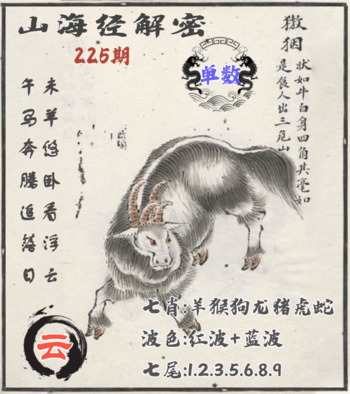 山海经解密
225期
单数
状如牛白身四角其毫如
是食人出三危山
未羊卧看浮云
午马奔腾追落日
云
七肖:羊猴狗龙猪虎蛇
波色:红波+蓝波
七尾:1.2.3.5.6.8.9